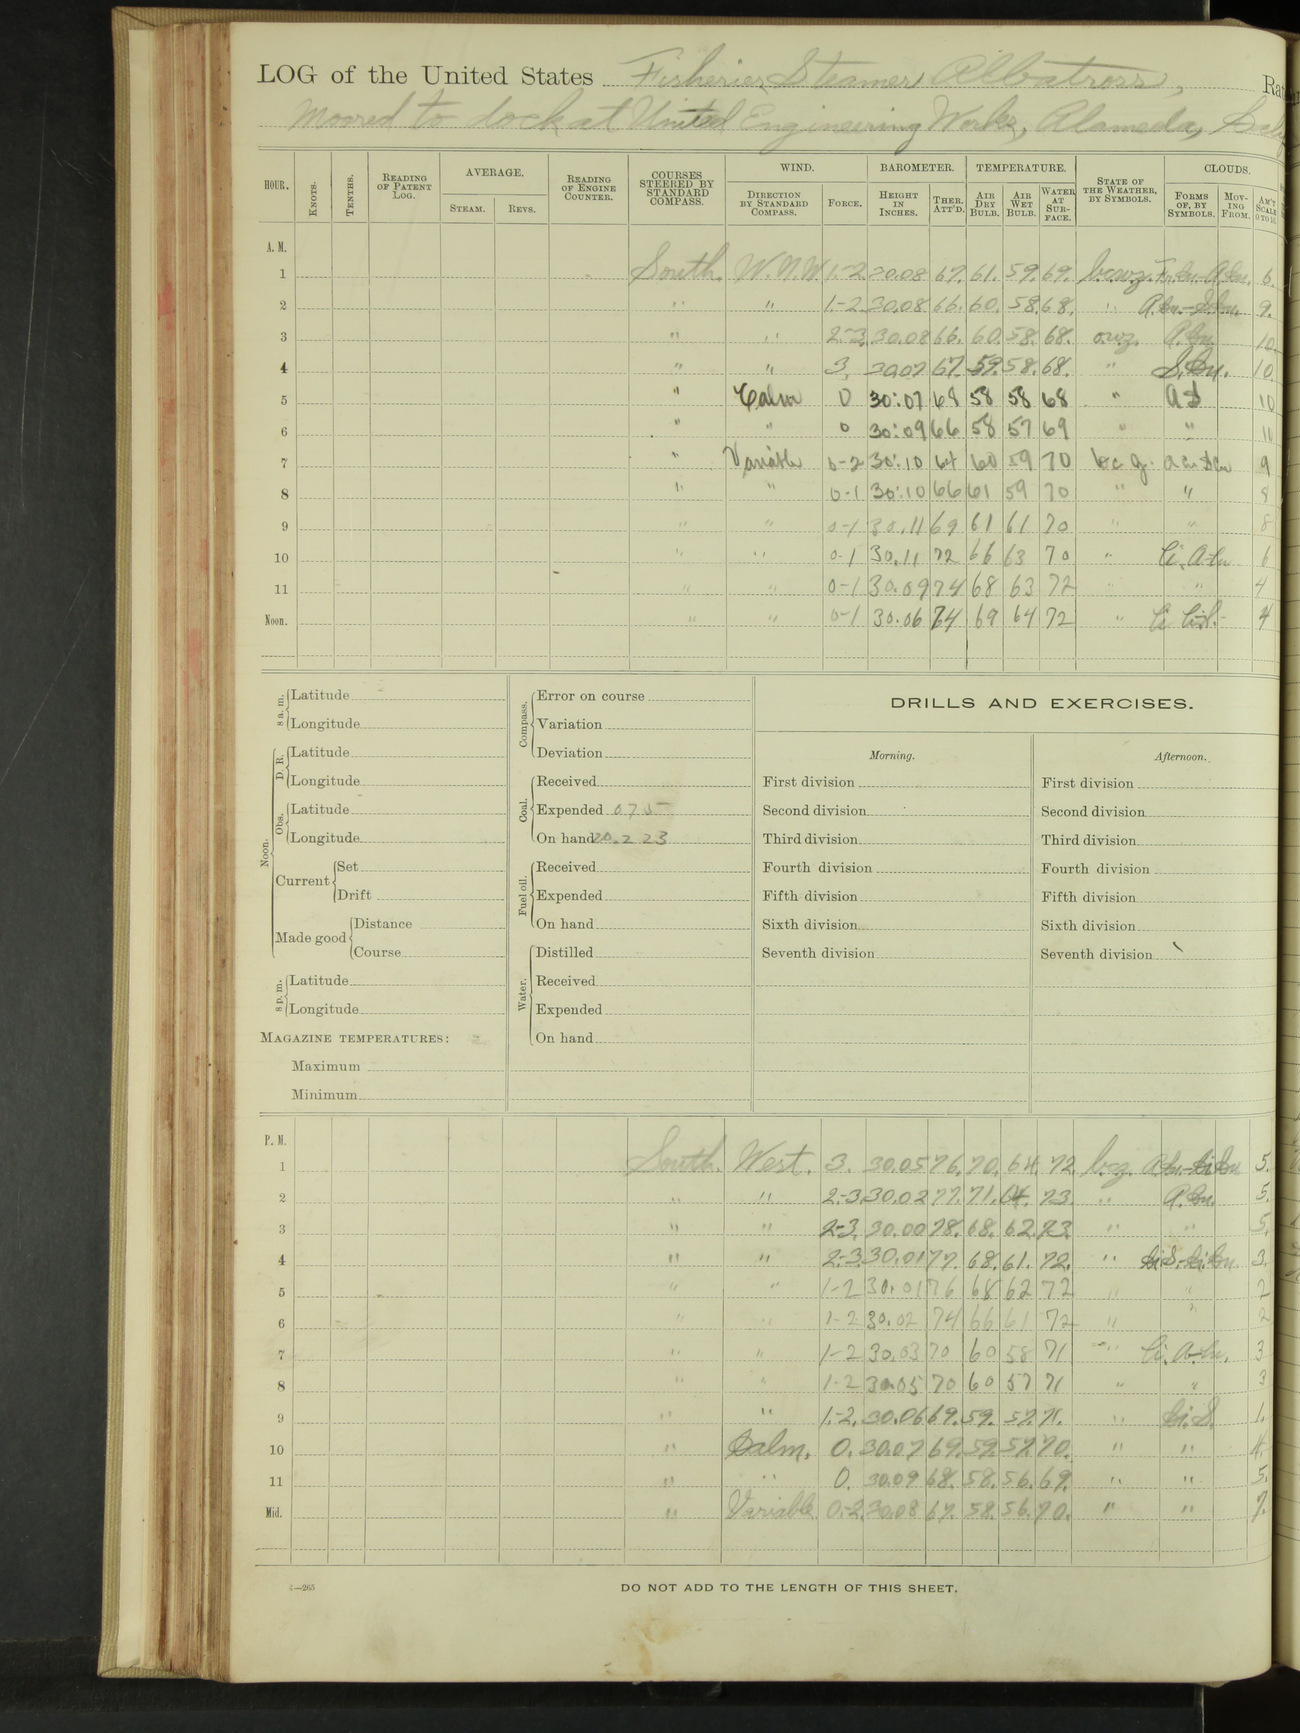 LOG of the United States Fisheries Steamer Albatross, Ra
Moored to dock at United Engineering Works, Alameda,
HOUR. KNOTS. TENTHS. READING OF PATENT LOG. AVERAGE. STEAM. REVS. READING OF ENGINE COUNTER. COURSES STEERED BY STANDARD COMPASS. WIND. DIRECTION BY STANDARD COMPASS. FORCE. BAROMETER. HEIGHT IN INCHES. THER. ATT'D. TEMPERATURE. AIR DRY BULB. AIR WET BULB. WATER AT SURFACE. STATE OF THE WEATHER, BY SYMBOLS. CLOUDS. FORMS OF, BY SYMBOLS. MOVING FROM. AM'T SCALE 0 TO 10.
A. M.
1 South. W.N.W. 1-2 30.08 67. 61. 59. 69. b.c.w.z. Fr.Cu.-A.Cu. 6.
2 " " 1-2 30.08 66. 60. 58. 68. " A.Cu.-S.Cu. 9.
3 " " 2-3. 30.08 66. 60. 58. 68. o.w.z. A.Cu. 10.
4 " " 3. 30.07 67. 59. 58. 68. " S.Cu. 10.
5 " Calm 0 30:07 68 58 58 68 " A S 10
6 " " 0 30:09 66 58 57 69 " " 10
7 " Variable 0-2 30:10 64 60 59 70 b c g. a cu s cu 9
8 " " 0-1 30:10 66 61 59 70 " " 8
9 " " 0-1 30.11 69 61 61 70 " " 8
10 " " 0-1 30.11 72 66 63 70 " Ci. A-Cu 6
11 " " 0-1 30.09 74 68 63 72 " " 4
Noon. " " 0-1 30.06 74 69 64 72 " Ci Ci-S.- 4
8 a. m. Latitude
Longitude
Noon. D. R. Latitude
Longitude
Obs. Latitude
Longitude
Current Set
Drift
Made good Distance
Course
8 p. m. Latitude
Longitude
MAGAZINE TEMPERATURES:
Maximum
Minimum
Compass. Error on course
Variation
Deviation
Coal. Received
Expended 075
On hand 20.223
Fuel oil. Received
Expended
On hand
Water. Distilled
Received
Expended
On hand
DRILLS AND EXERCISES.
Morning. Afternoon.
First division First division
Second division Second division
Third division Third division
Fourth division Fourth division
Fifth division Fifth division
Sixth division Sixth division
Seventh division Seventh division
P. M.
1 South. West. 3. 30.05 76. 70. 64. 72. b.c.z. A.Cu.-Ci.Cu. 5.
2 " " 2-3 30.02 77. 71. 64. 73. " A.Cu. 5.
3 " " 2-3. 30.00 78. 68. 62. 73. " " 5.
4 " " 2-3 30.01 77. 68. 61. 72. " Ci.S.-Ci.Cu. 3.
5 " " 1-2 30.01 76 68 62 72 " " 2
6 " " 1-2 30.02 74 66 61 72 " " 2
7 " " 1-2 30.03 70 60 58 71 " Ci. A-Cu. 3
8 " " 1-2 30.05 70 60 57 71 " " 3
9 " " 1-2. 30.06 69. 59. 57. 71. " Ci.S. 1.
10 " Calm. 0. 30.07 69. 59. 57. 70. " " 4.
11 " " 0. 30.09 68. 58. 56. 69. " " 5.
Mid. " Variable. 0-2. 30.08 67. 58. 56. 70. " " 7.
—265
DO NOT ADD TO THE LENGTH OF THIS SHEET.